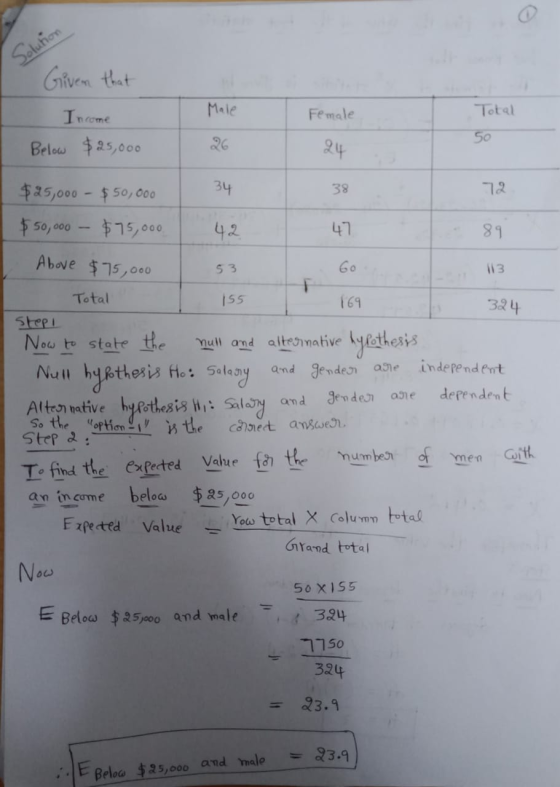 ①
Solution
Given that
Income Male Female Total
Below $25,000 26 24 50
$25,000 - $50,000 34 38 72
$50,000 - $75,000 42 47 89
Above $75,000 53 60 113
Total 155 169 324
Step1
Now to state the null and alternative hypothesis
Null hypothesis H0: Salary and gender are independent
Alternative hypothesis H1: Salary and gender are dependent
So the "option-1" is the correct answer.
Step 2:
To find the expected value for the number of men with
an income below $25,000
Expected Value = row total X column total
Grand total
Now
E Below $25,000 and male = 50 X 155
324
= 7750
324
= 23.9
∴ E Below $25,000 and male = 23.9